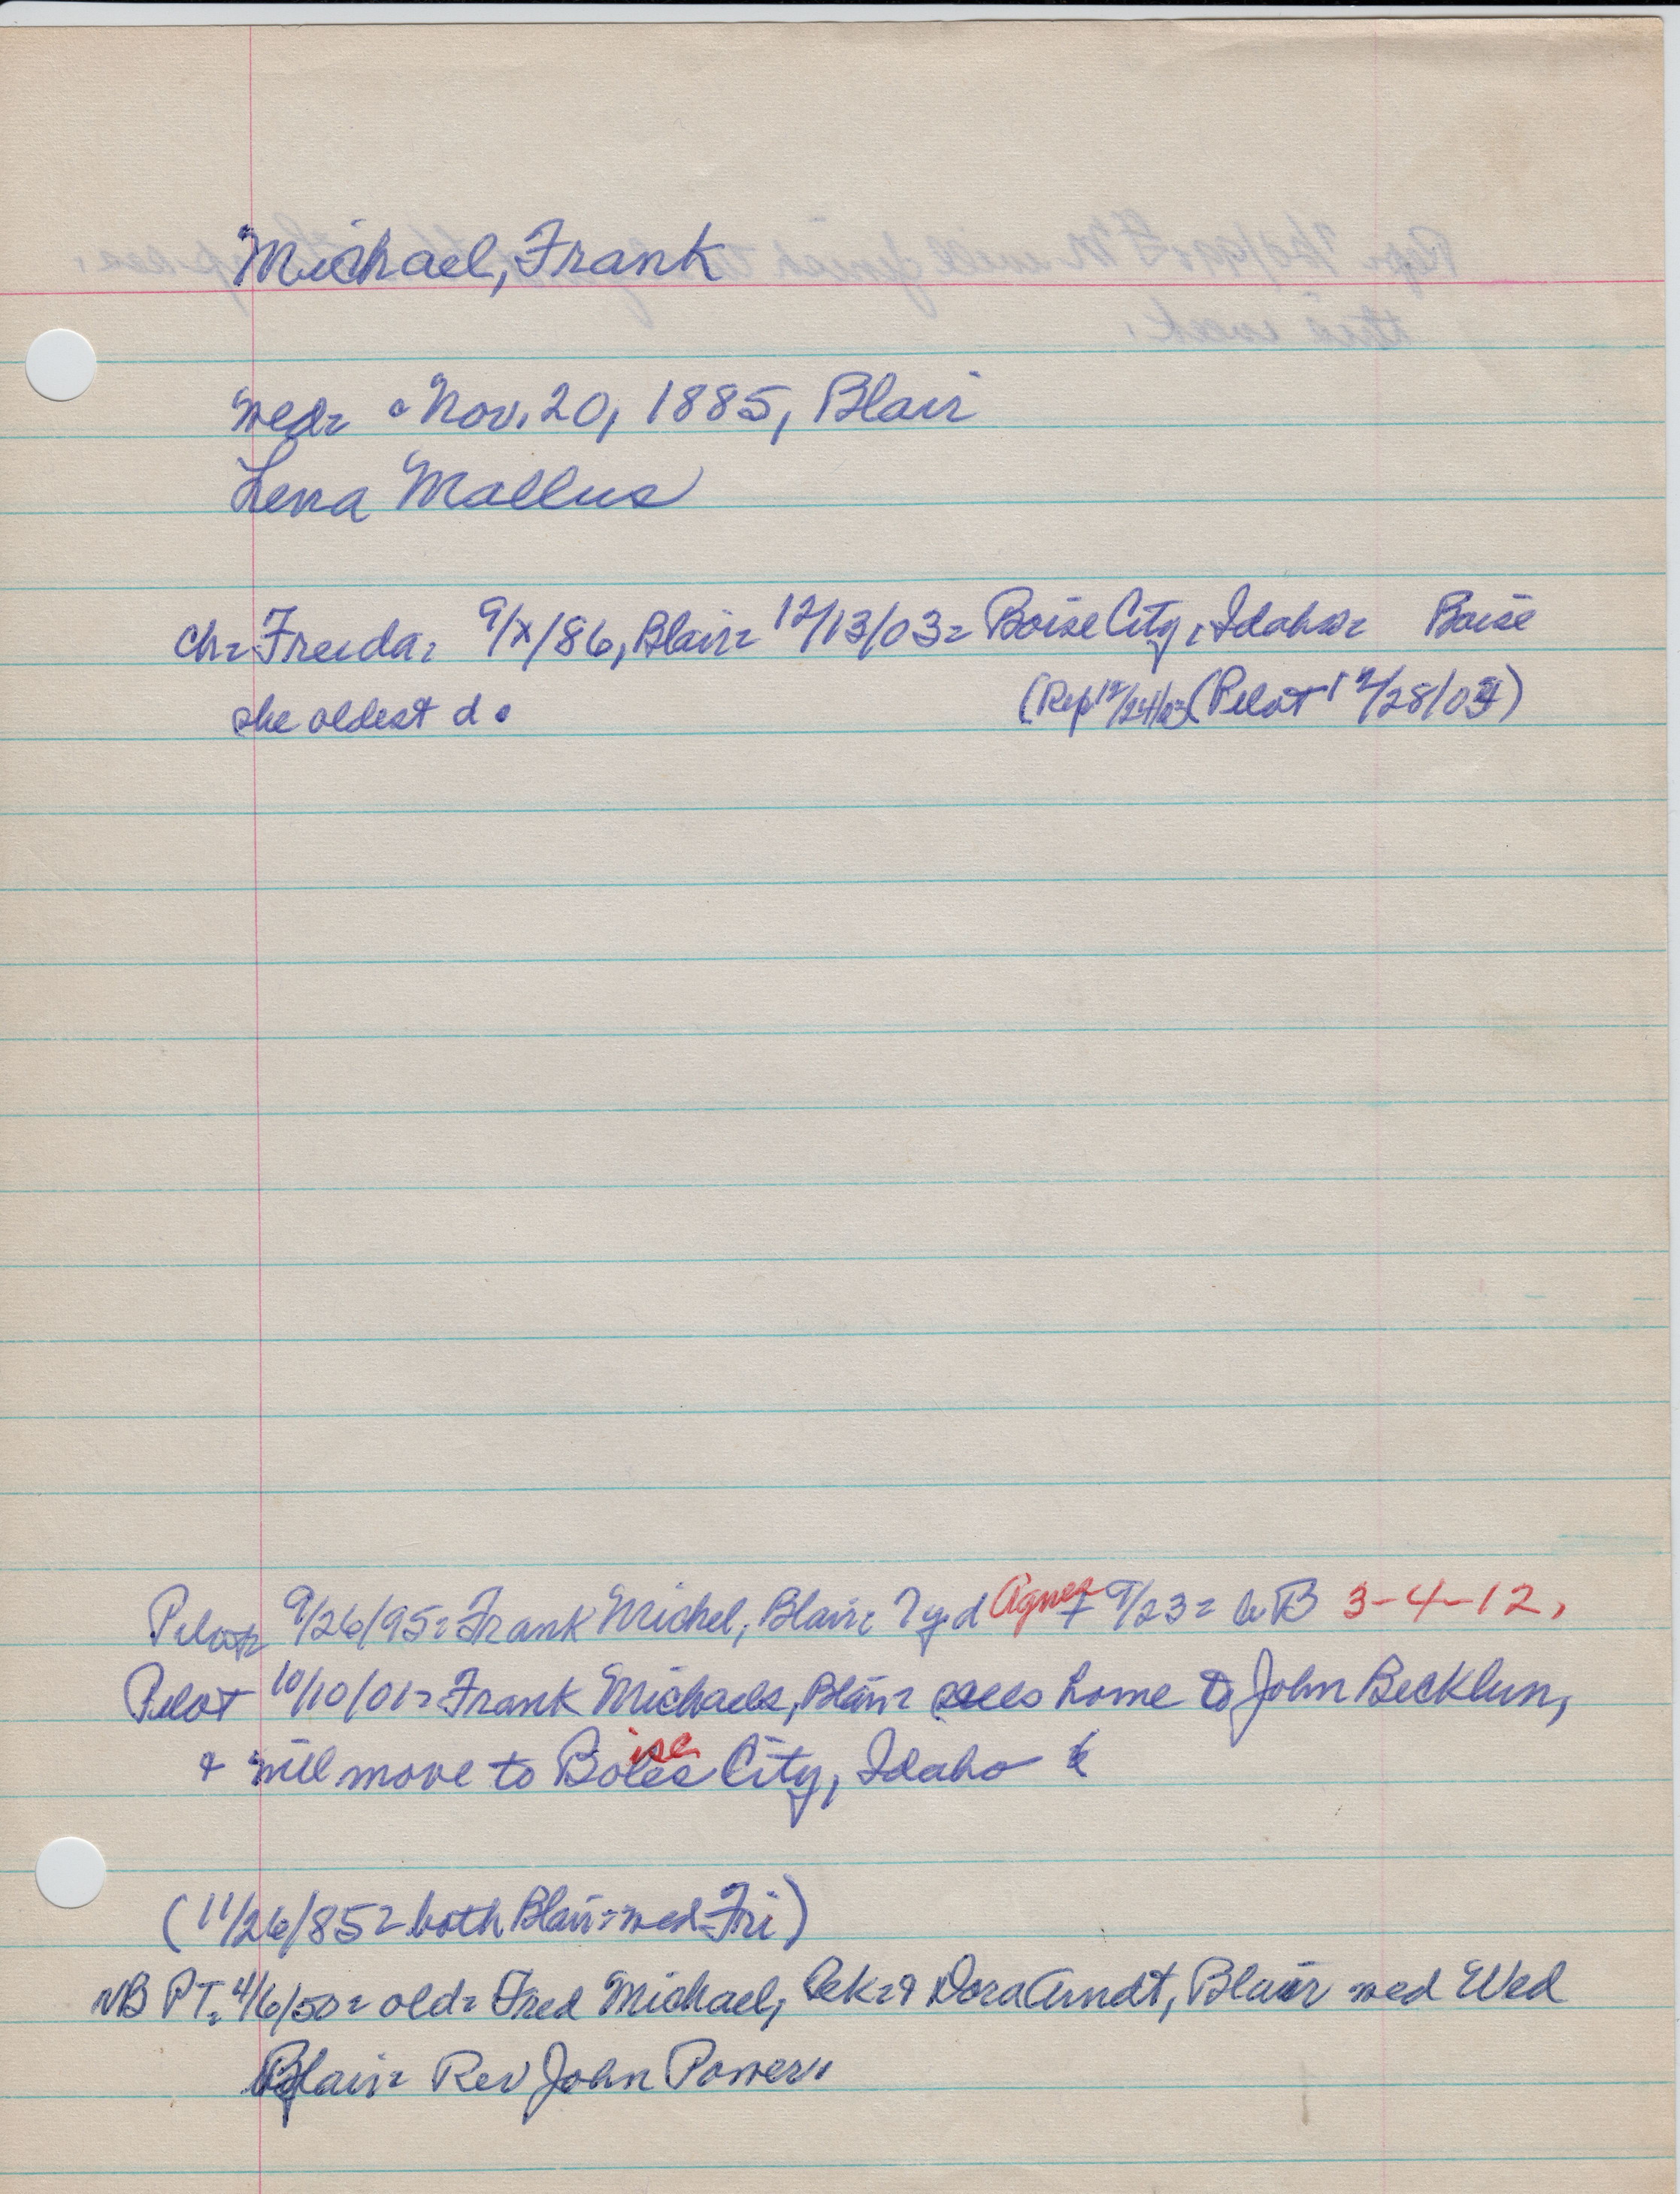 Michael, Frank
med= Nov. 20, 1885, Blair
Lena Mallus
ch= Freida= 9/x/86, Blair= 12/13/03= Boise City, Idaho= Boise
she oldest d. (Rep 12/24/03 (Pilot 12/28/03)
Pilot= 9/26/95= Frank Michel, Blair= 7 y d Agnes † 9/23= 3-4-12,
Pilot 10/10/01= Frank Michaels, Blair= sells home to John Becklun,
& will move to Boise City, Idaho
(11/26/85= both Blair= med Fri)
NB PT= 4/6/50= old= Fred Michael, & Dora Arndt, Blair med Wed
Blair= Rev John Powers